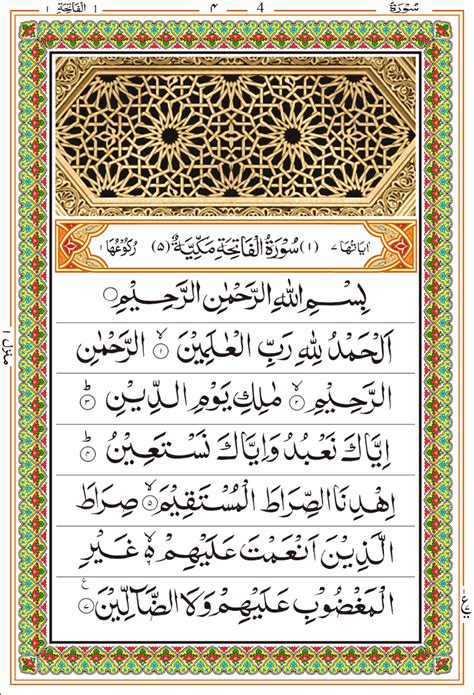 سُوۡرَةُ 4 ۴ اَلۡفَاتِحَةِ ١
اٰيَاتُهَا ٧ (١) سُوۡرَةُ الۡفَاتِحَةِ مَكِّيَّةٌ (٥) رُكُوۡعُهَا ١
بِسۡمِ اللهِ الرَّحۡمٰنِ الرَّحِيۡمِ
اَلۡحَمۡدُ لِلّٰهِ رَبِّ الۡعٰلَمِيۡنَ ۙ‏ ﴿١﴾ الرَّحۡمٰنِ
الرَّحِيۡمِ ۙ‏ ﴿۲﴾ مٰلِكِ يَوۡمِ الدِّيۡنِ ؕ‏ ﴿۳﴾
اِيَّاكَ نَعۡبُدُ وَاِيَّاكَ نَسۡتَعِيۡنُ ؕ‏ ﴿۴﴾
اِهۡدِنَا الصِّرَاطَ الۡمُسۡتَقِيۡمَ ۙ‏ ﴿۵﴾ صِرَاطَ
الَّذِيۡنَ اَنۡعَمۡتَ عَلَيۡهِمۡ ۙ۬ غَيۡرِ
الۡمَغۡضُوۡبِ عَلَيۡهِمۡ وَلَا الضَّآلِّيۡنَ ﴿۷﴾
منزل ١